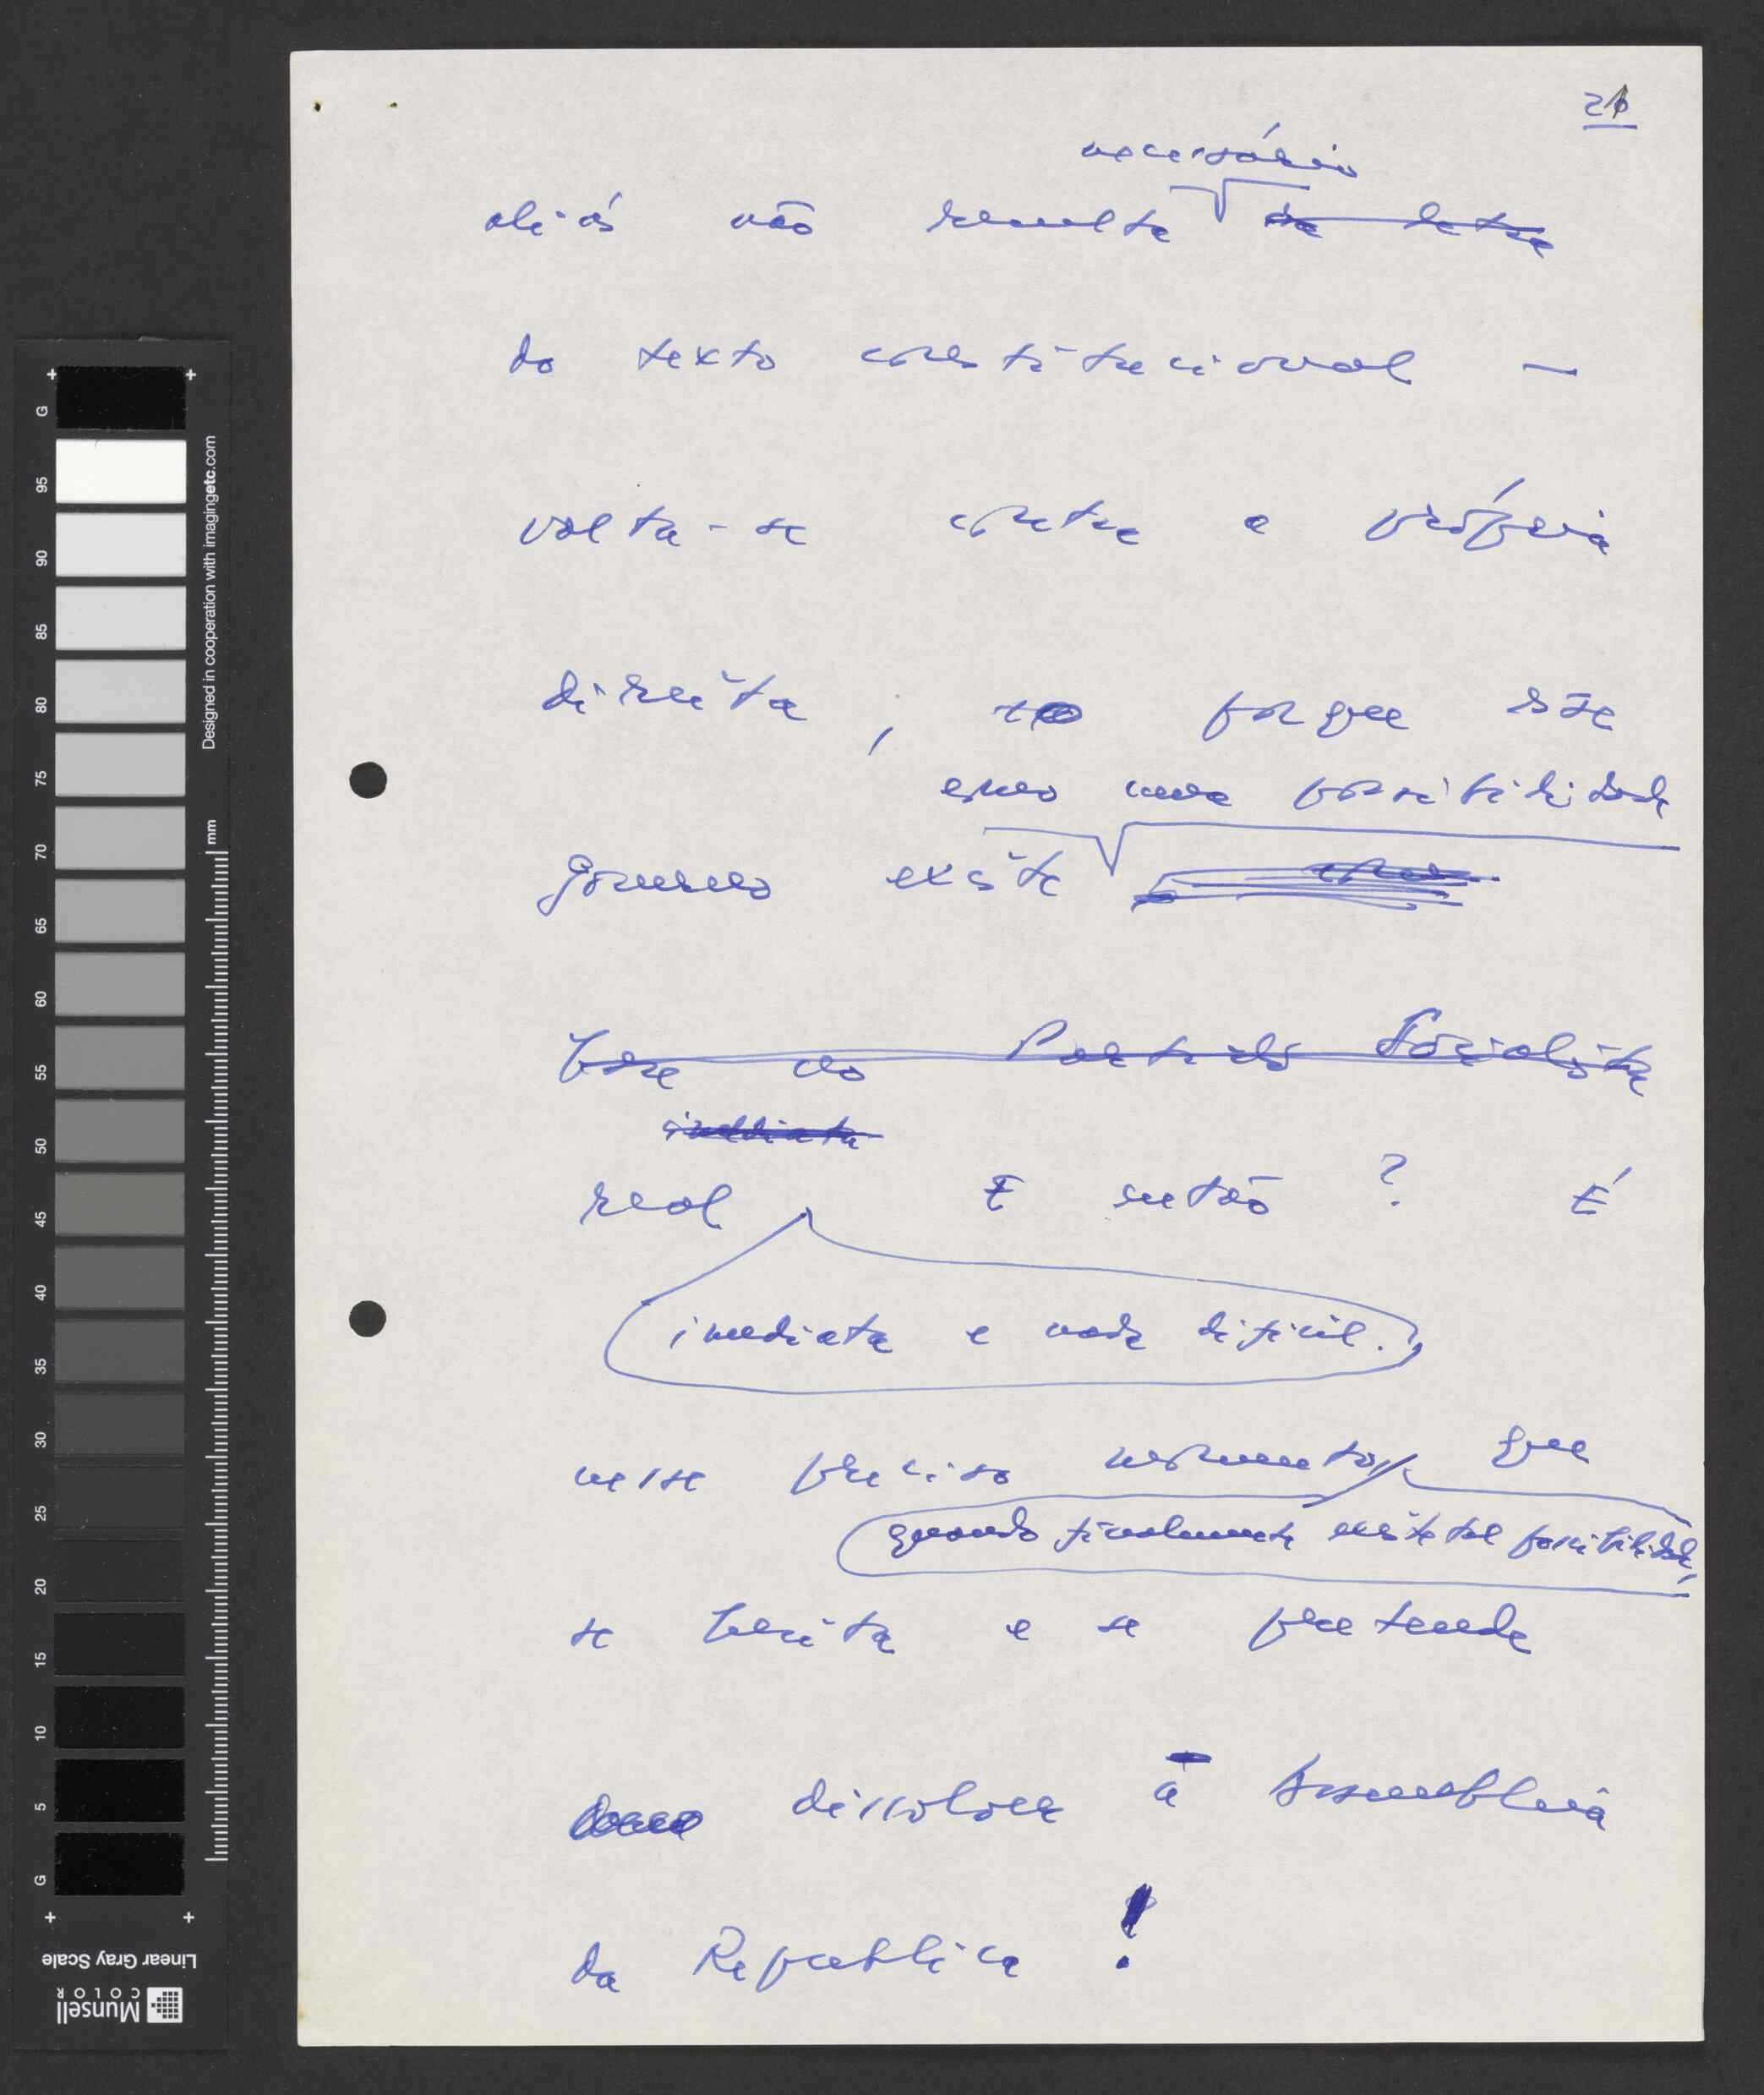 21
necessário
aliás não resulta da letra
do texto constitucional —
volta-se contra a própria
direita, porque esse
como uma possibilidade
governo existe
base no Partido Socialista
imediata
real E então ? É
imediata e nada difícil.
nesse preciso momento, que
quando finalmente existe tal possibilidade,
se hesita e se pretende
dissolver a Assembleia
da Republica !
G
95
90
85
80
75
70
65
60
55
50
45
40
35
30
25
20
15
10
5
G
Designed in cooperation with imagingetc.com
mm
Linear Gray Scale
Munsell
COLOR